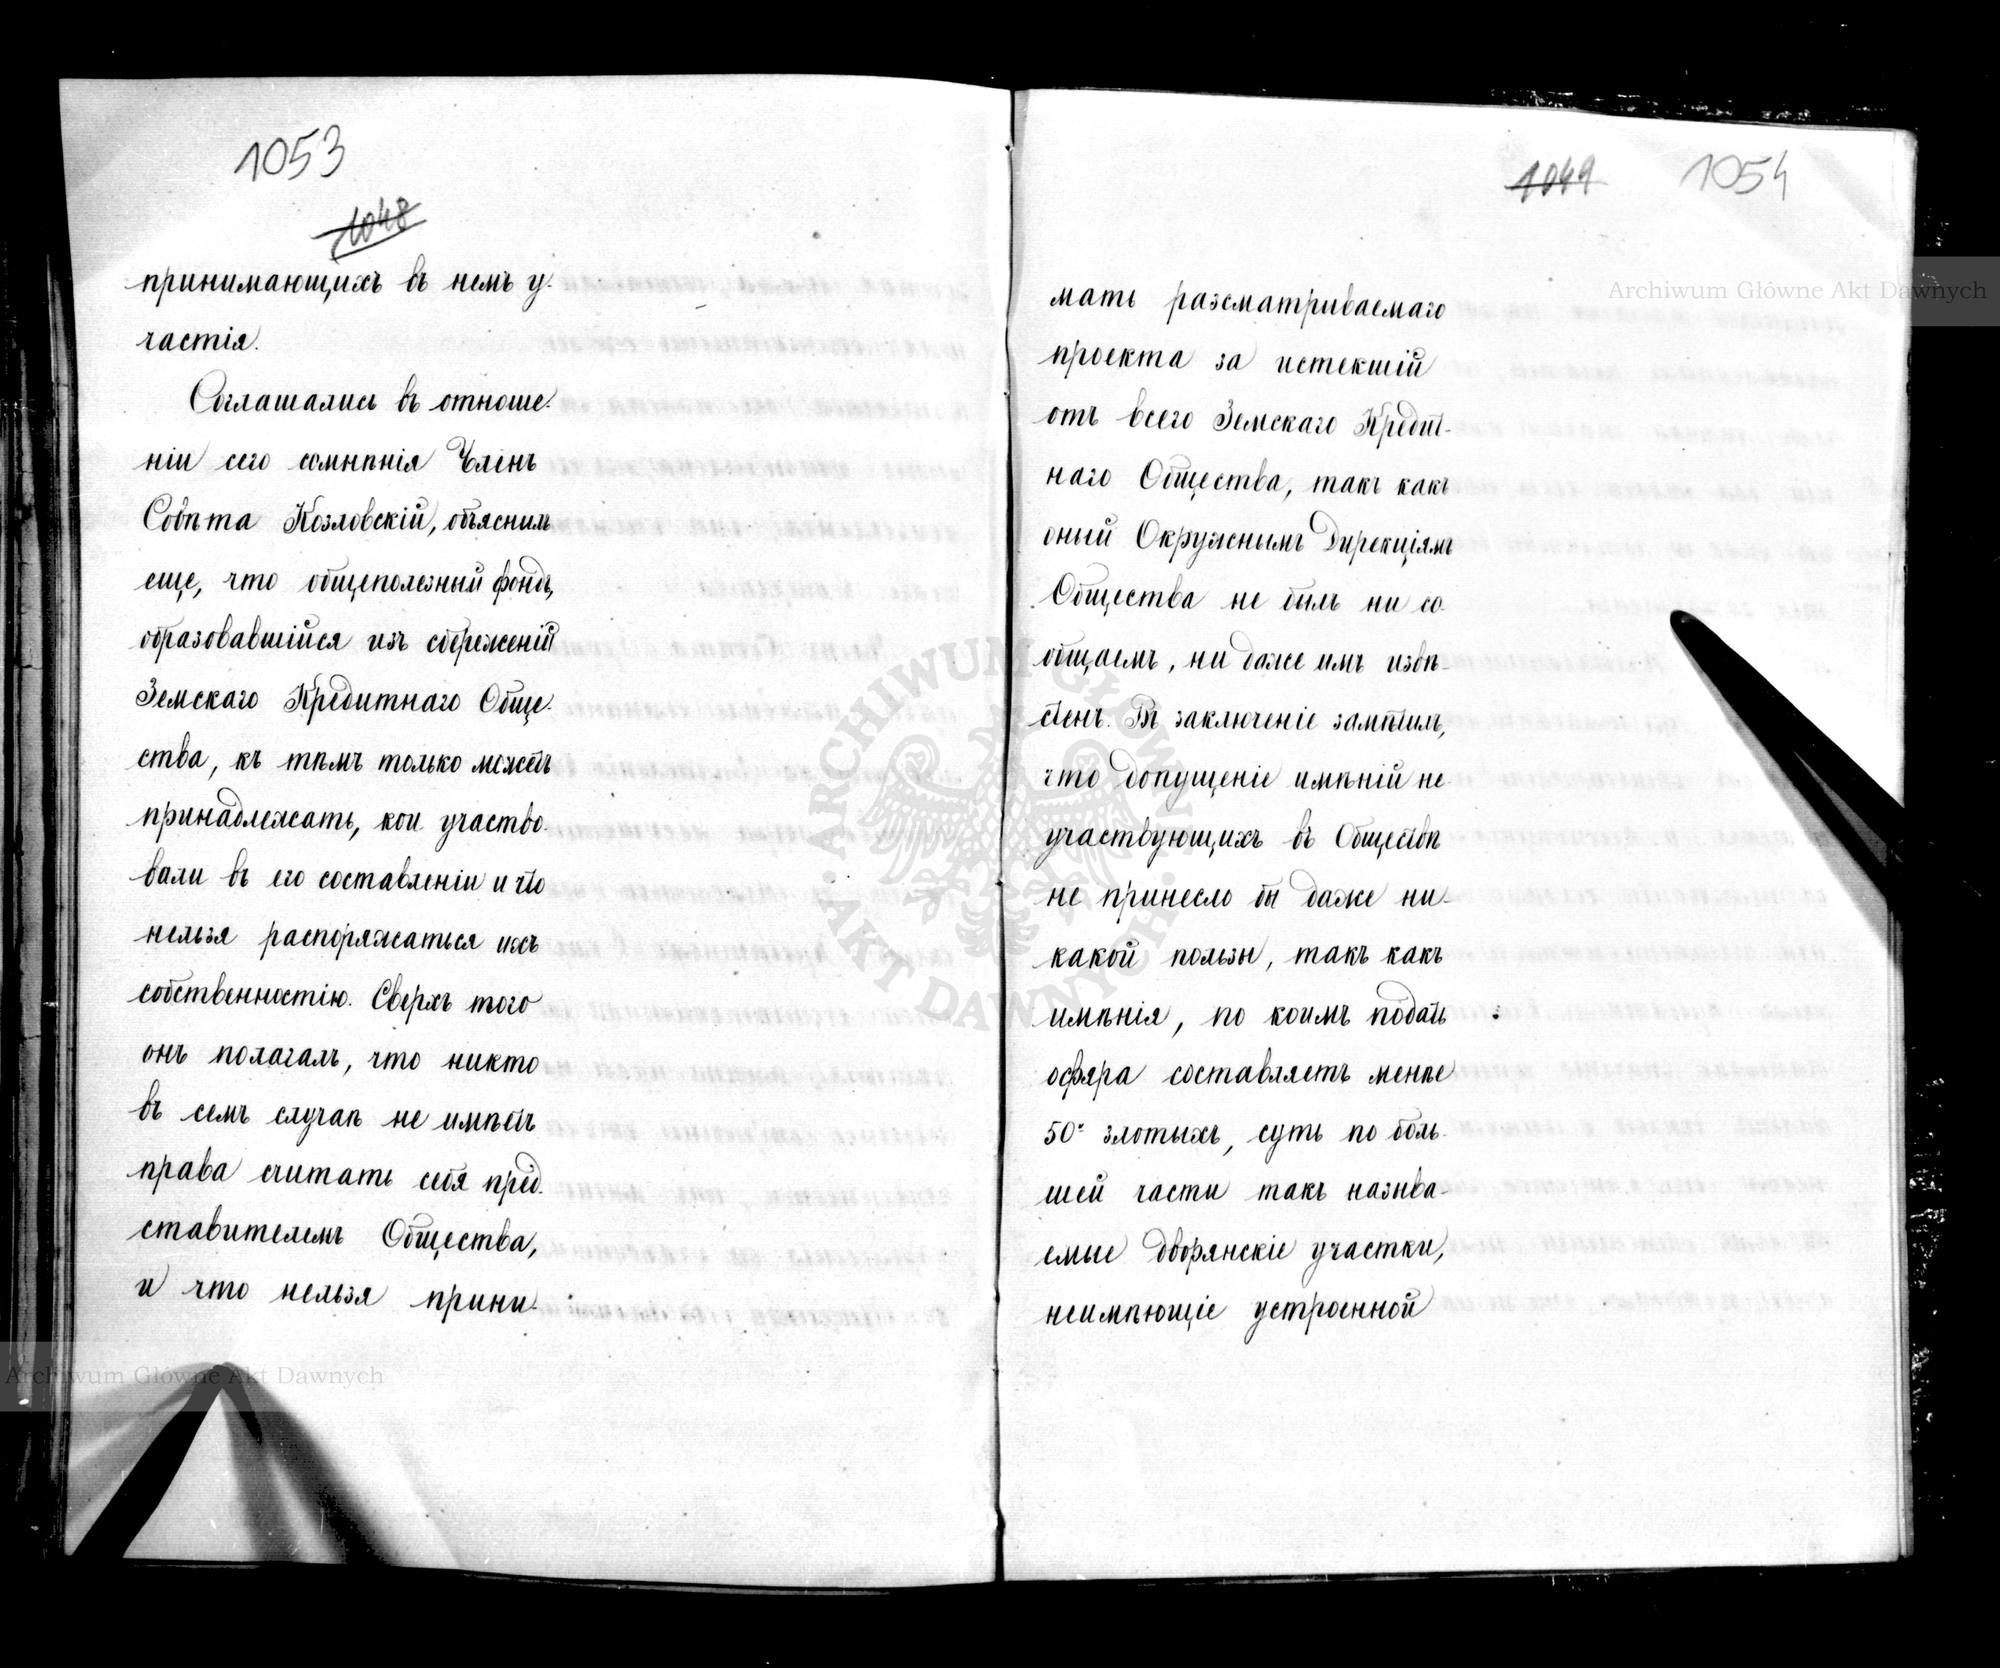 1053
1048
принимающихъ въ немъ у-
частія.
Соглашались въ отноше-
ніи сего сомнѣнія Членъ
Совѣта Козловскій, объяснилъ
еще, что общеполезный фондъ,
образовавшійся изъ сбереженій
Земскаго Кредитнаго Обще-
ства, къ тѣмъ только можетъ
принадлежать, кои участво-
вали въ его составленіи и что
нельзя распоряжаться ихъ
собственностію. Сверхъ того
онъ полагалъ, что никто
въ семъ случаѣ не имѣетъ
права считать себя пред-
ставителемъ Общества,
и что нельзя прини-
1049 1054
мать разсматриваемаго
проекта за истекшій
отъ всего Земскаго Кредит-
наго Общества, такъ какъ
оный Окружнымъ Дирекціямъ
Общества не былъ ни со-
общаемъ, ни даже имъ извѣ-
стенъ. Въ заключеніе замѣтилъ,
что допущеніе имѣній не-
участвующихъ въ Обществѣ
не принесло бы даже ни-
какой пользы, такъ какъ
имѣнія, по коимъ подать
офяра составляетъ менѣе
50. злотыхъ, суть по боль-
шей части такъ называ-
емые дворянскіе участки,
неимѣющіе устроенной
Archiwum Główne Akt Dawnych
Archiwum Główne Akt Dawnych
ARCHIWUM GŁÓWNE AKT DAWNYCH